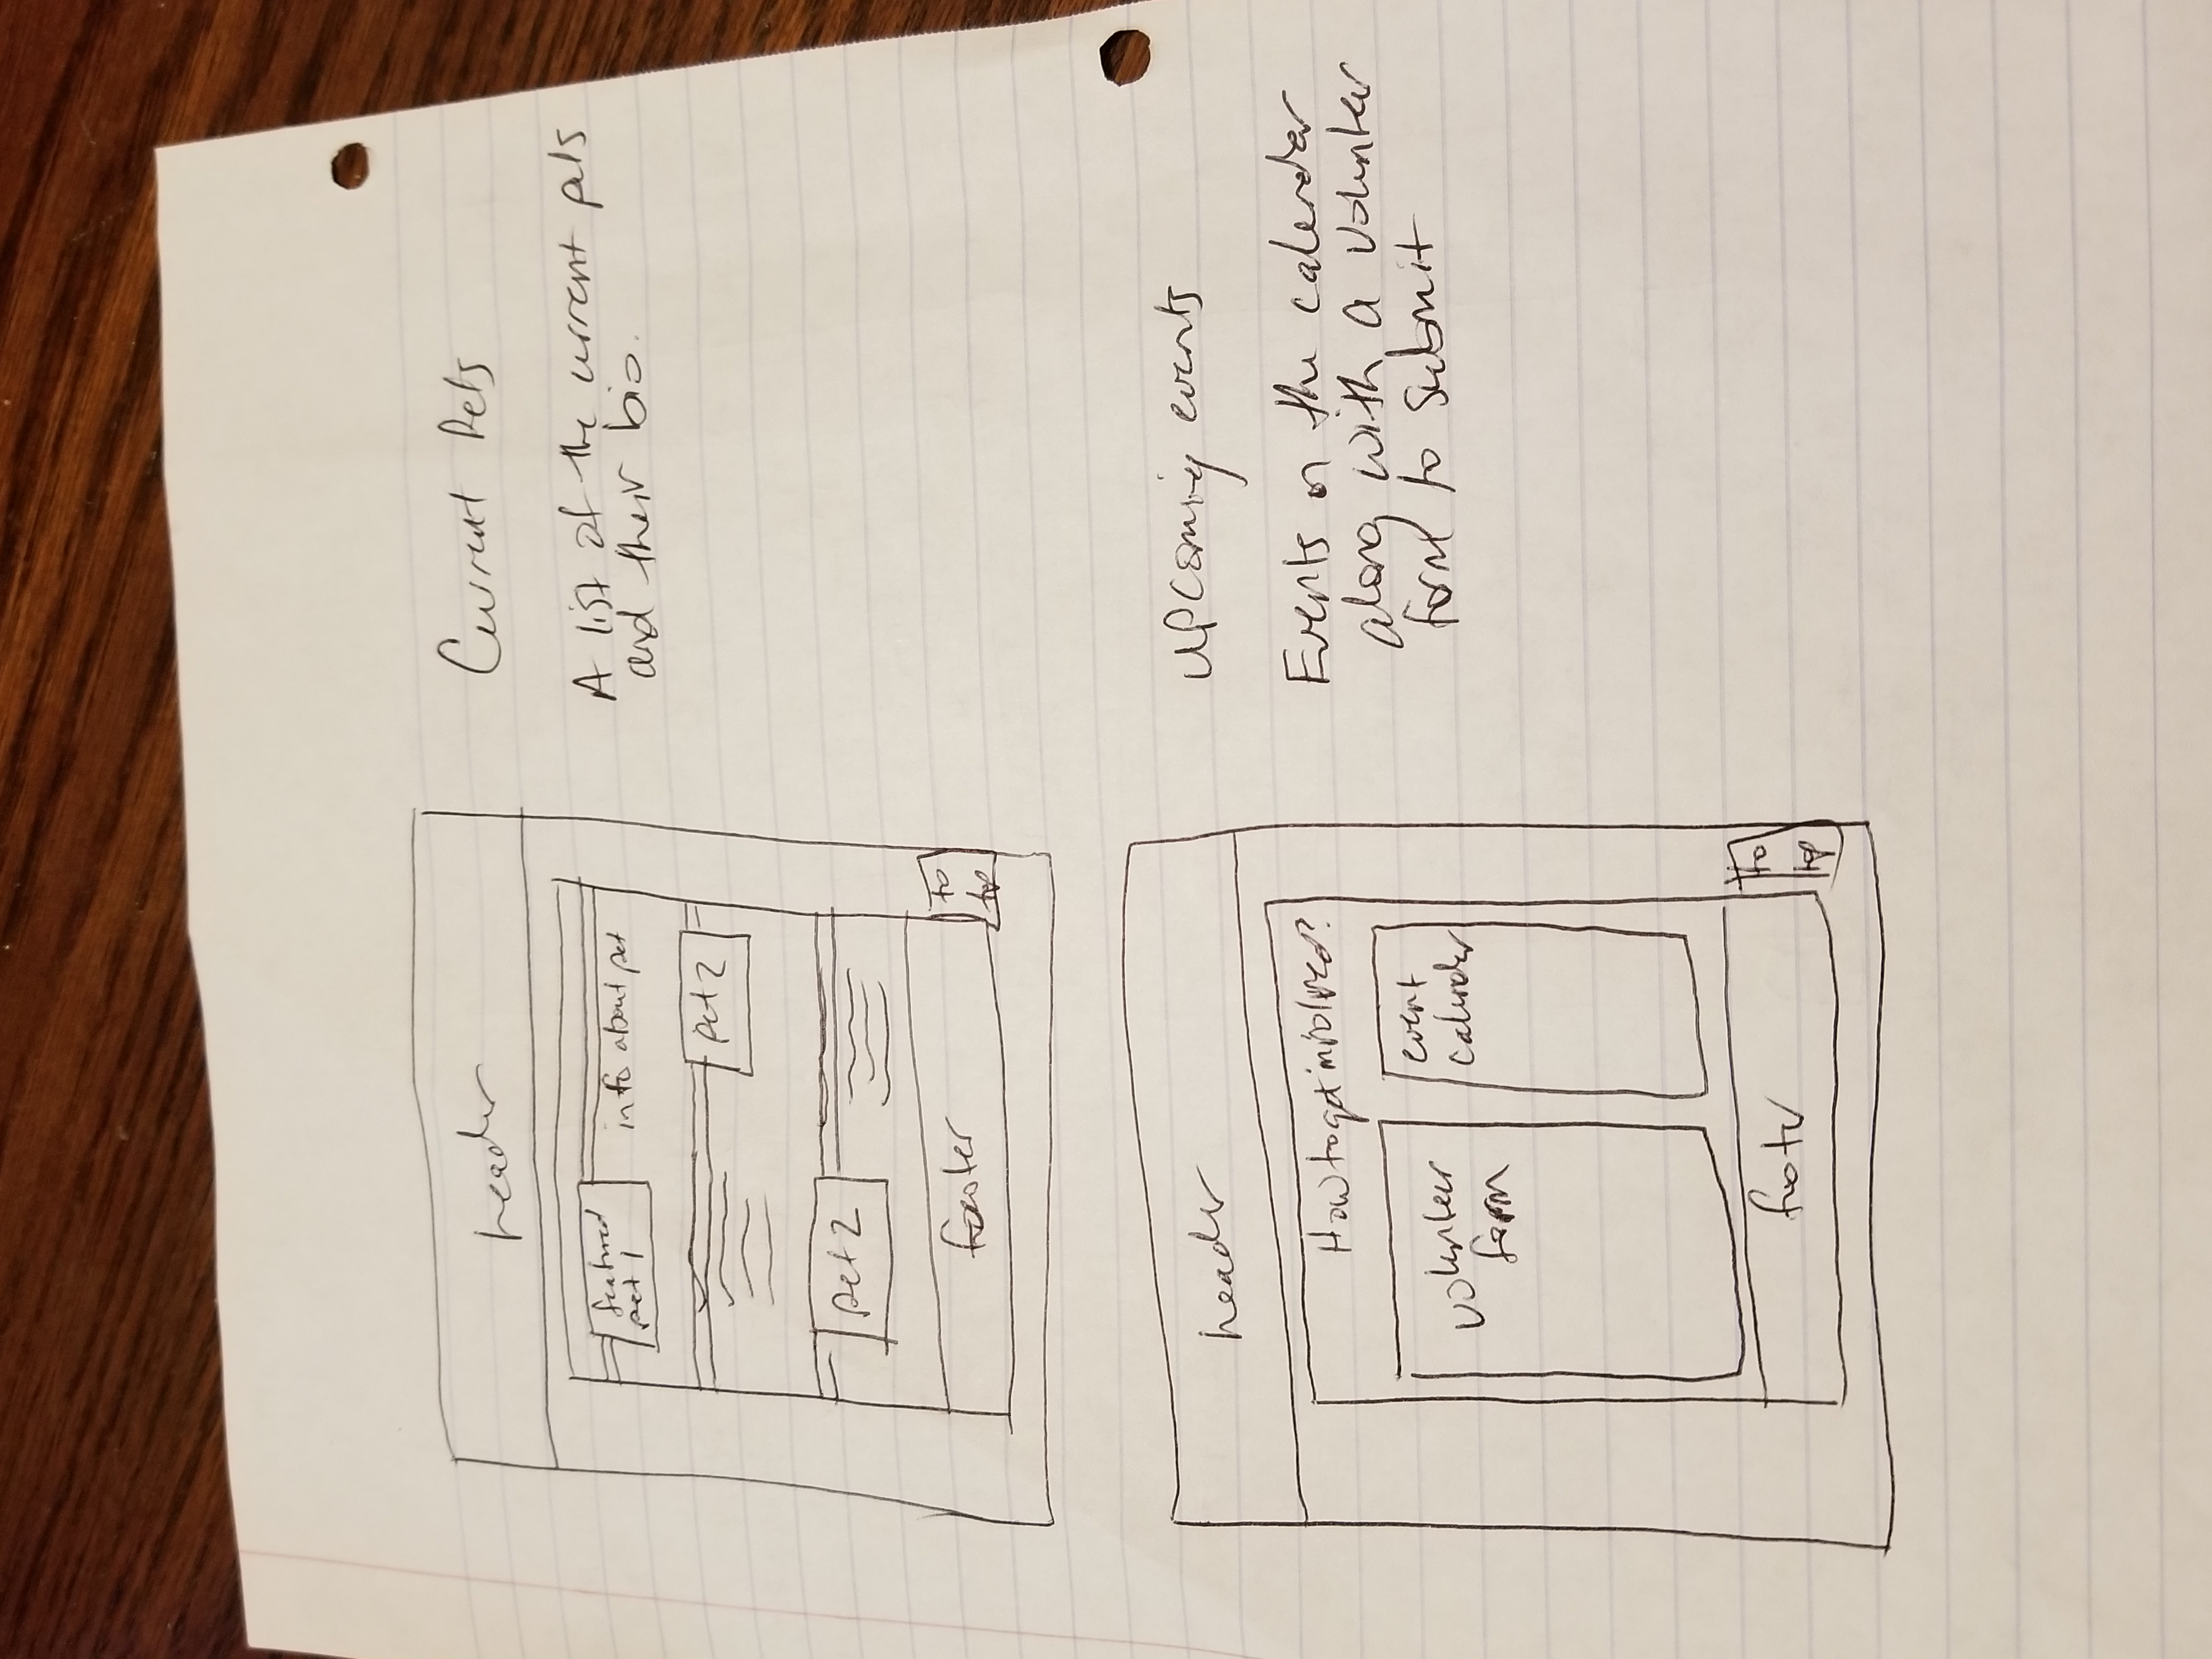 header
featured
pet 1
info about pet
pet 2
pet 2
footer
to
top
Current Pets
A list of the current pets
and their bio.
header
How to get involved?
volunteer
form
event
calender
footer
to
top
Upcoming events
Events on the calender
along with a volunteer
form to submit